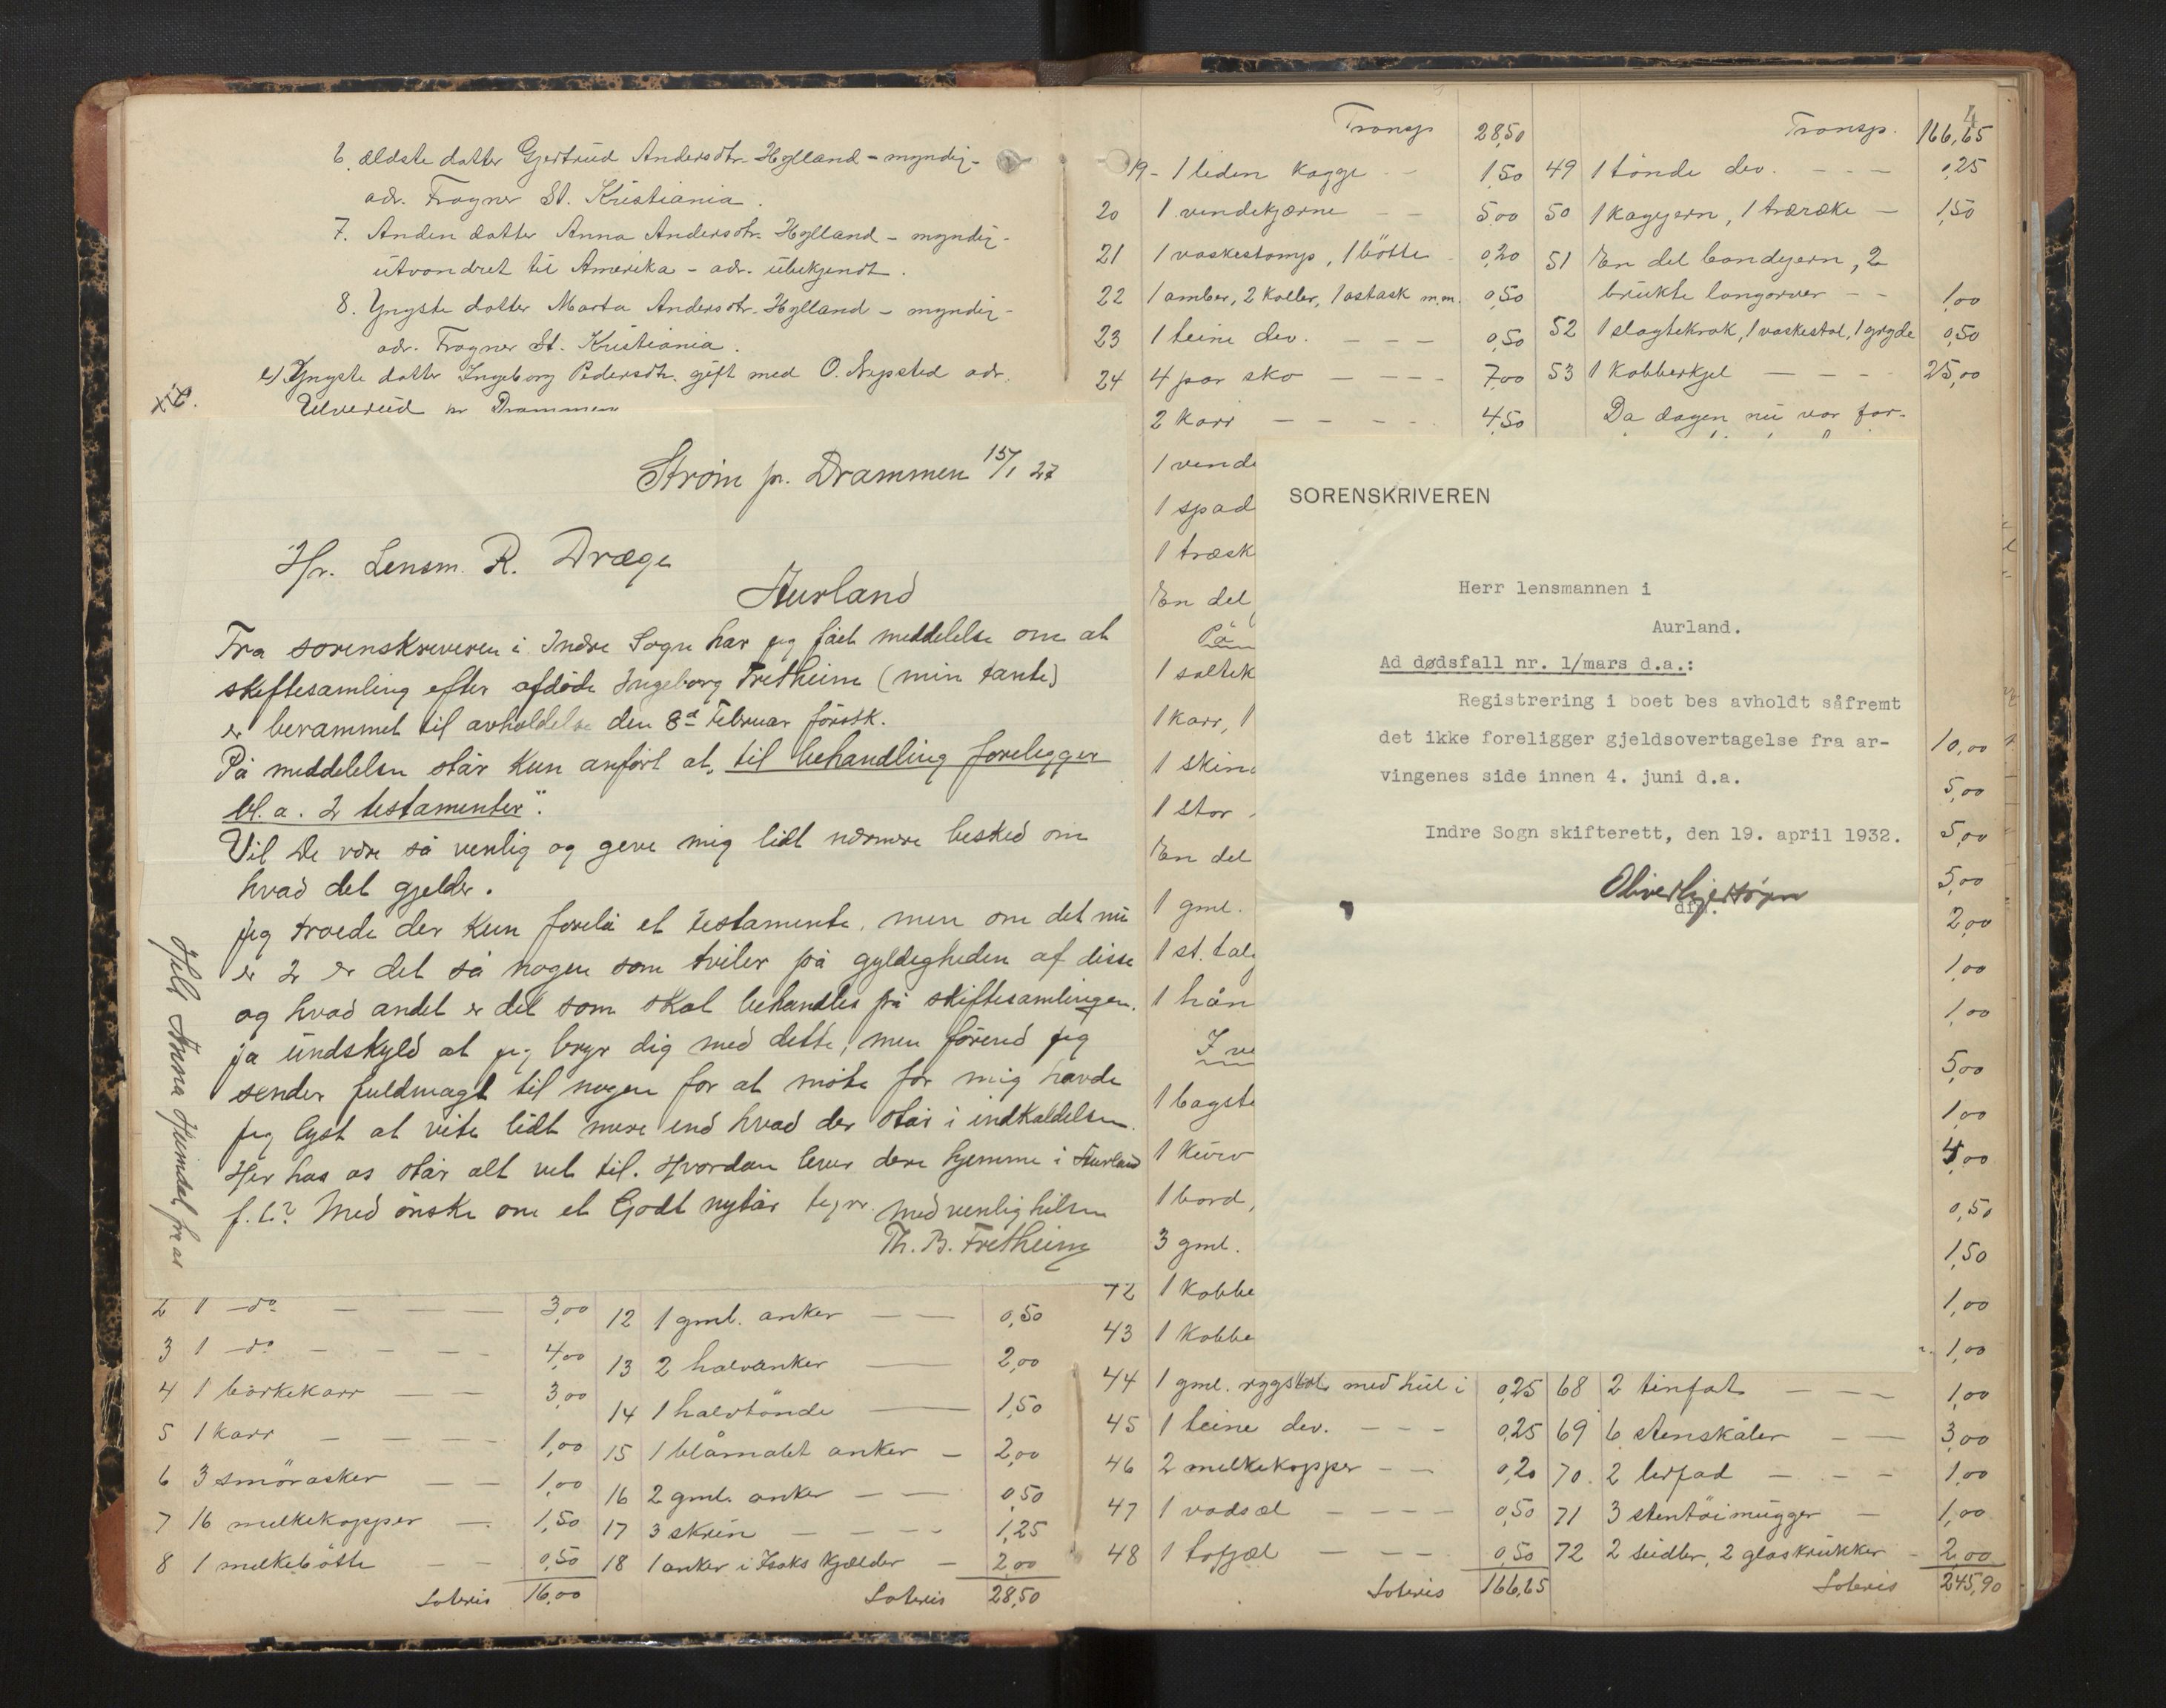 6. ældste datter Gjertrud Andersdtr. Hylland - myndig -
adr. Frogner St. Kristiania.
7. Anden datter Anna Andersdtr. Hylland - myndig -
utvandret til Amerika - adr. ubekjendt.
8. Yngste datter Marta Andersdtr. Hylland - myndig -
adr. Frogner St. Kristiania.
e) Yngste datter Ingeborg Pedersdtr. gift med O. Nepsted adr.
Ulverud pr Drammen
Strøm pr. Drammen 15/1 27
Hr. Lensm. R. Dræge
Aurland
Fra sorenskriveren i Indre Sogn har jeg fået meddelelse om at
skiftesamling efter afdöde Ingeborg Fretheim (min tante)
er berammet til avholdelse den 8d Februar förstk.
På meddelelsen står kun anfört at „til behandling foreligger
bl.a. 2 testamenter".
Vil De være så venlig og geve mig lidt nærmere besked om
hvad det gjelder.
jeg troede der kun forelå et testamente, men om det nu
er 2 er det så nogen som tviler på gyldigheden af disse
og hvad andet er det som skal behandles på skiftesamlingen.
ja undskyld at jeg bryr dig med dette, men förend jeg
sender fuldmagt til nogen for at möte for mig havde
jeg lyst at vite lidt mere end hvad der står i indkaldelsen.
Her hos os står alt vel til. Hvordan lever dere hjemme i Aurland
f.t.? Med önske om et Godt nytår tegnr. med venlig hilsen
Th. B. Fretheim
Hels Anna Heimdal fra os
2 1 -do- — — 3,00
3 1 -do- — — 4,00
4 1 börkekarr — — 3,00
5 1 karr — — 1,00
6 3 smörasker — — 1,00
7 16 melkekopper — 1,50
8 1 melkebötte — — 0,50
Lateris 16,00
12 1 gml. anker — — 0,50
13 2 halvanker — 2,00
14 1 halvtönde — 1,50
15 1 blåmalet anker — 2,00
16 2 gml. anker — — 0,50
17 3 skrin — — 1,25
18 1 anker i Isaks kjælder — 2,00
Lateris 28,50
Transp 28,50
19 - 1 liden kagge - - 1,50
20 1 vendekjærne - - 5,00
21 1 vaskestamp, 1 bötte 0,20
22 1 amber, 2 koller, 1 ostask m.m. 0,50
23 1 teine div. - - - 0,50
24 4 par sko - - - 7,00
2 karr - - - - 4,50
1 vende
1 spad
1 træsk
En del
På
1 saltek
1 karr, 1
1 skin
1 stor
En del
1 gml.
1 st. tal
1 hån
I ve
1 bagste
1 kurv
1 bord,
3 gml.
42 1 kobbe
43 1 kobbe
44 1 gml. rygstol med hul i 0,25
45 1 teine div. - - - 0,25
46 2 melkekopper - - 0,20
47 1 vadsæl - - - - 0,50
48 1 tofjæl - - - 0,50
Lateris 166,65
4
Transp. 166,65
49 1 tönde div. - - - 0,25
50 1 kagjern, 1 træræke - 1,50
51 En del bandejern, 2
brukte langorver - - 1,00
52 1 slagtekrok, 1 vaskestol, 1 gryde 0,50
53 1 kobberkjel - - - 25,00
Da dagen nu var for-
SORENSKRIVEREN
Herr lensmannen i
Aurland.
Ad dødsfall nr. 1/mars d.a.:
Registrering i boet bes avholdt såfremt
det ikke foreligger gjeldsovertagelse fra ar-
vingenes side innen 4. juni d.a.
Indre Sogn skifterett, den 19. april 1932.
10,00
5,00
5,00
5,00
2,00
1,00
1,00
5,00
1,00
4,00
0,50
1,50
1,00
1,00
68 2 tinfat - - - 1,00
69 6 stenskåler - - 3,00
70. 2 lerfad - - - 1,00
71 3 stentöimugger - 1,00
72 2 seidler, 2 glaskrukker - 2,00
Lateris 245,90